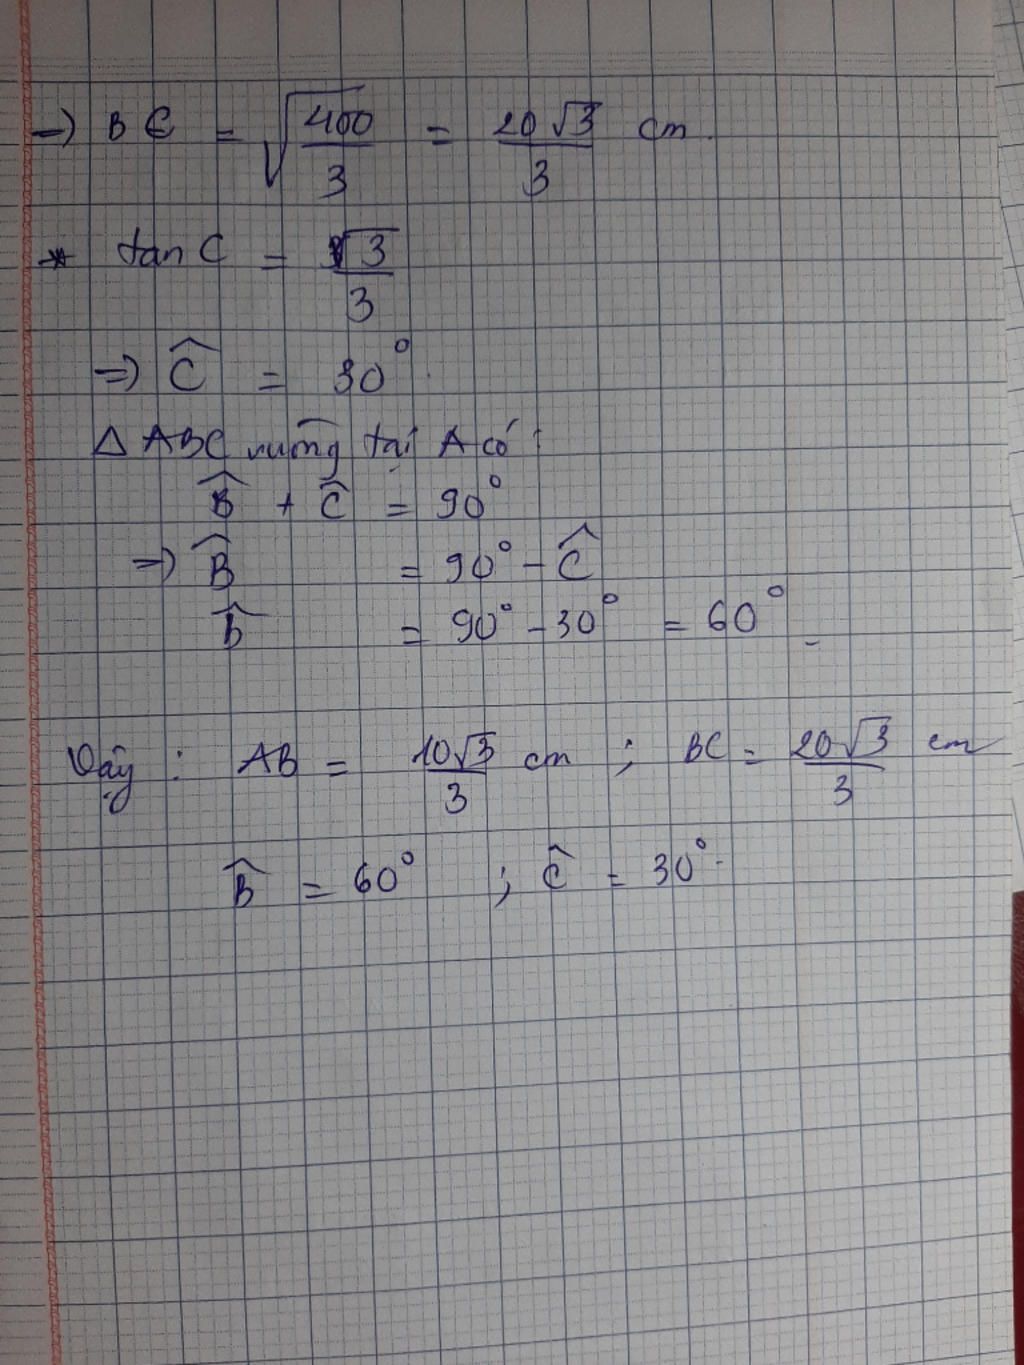 => BC = √(400/3) = 20√3/3 cm.
* tan C = √3/3
=> Ĉ = 30°.
Δ ABC vuông tại A có :
B̂ + Ĉ = 90°
=> B̂ = 90° - Ĉ
B̂ = 90° - 30° = 60°
Vậy : AB = 10√3/3 cm ; BC = 20√3/3 cm
B̂ = 60° ; Ĉ = 30°.